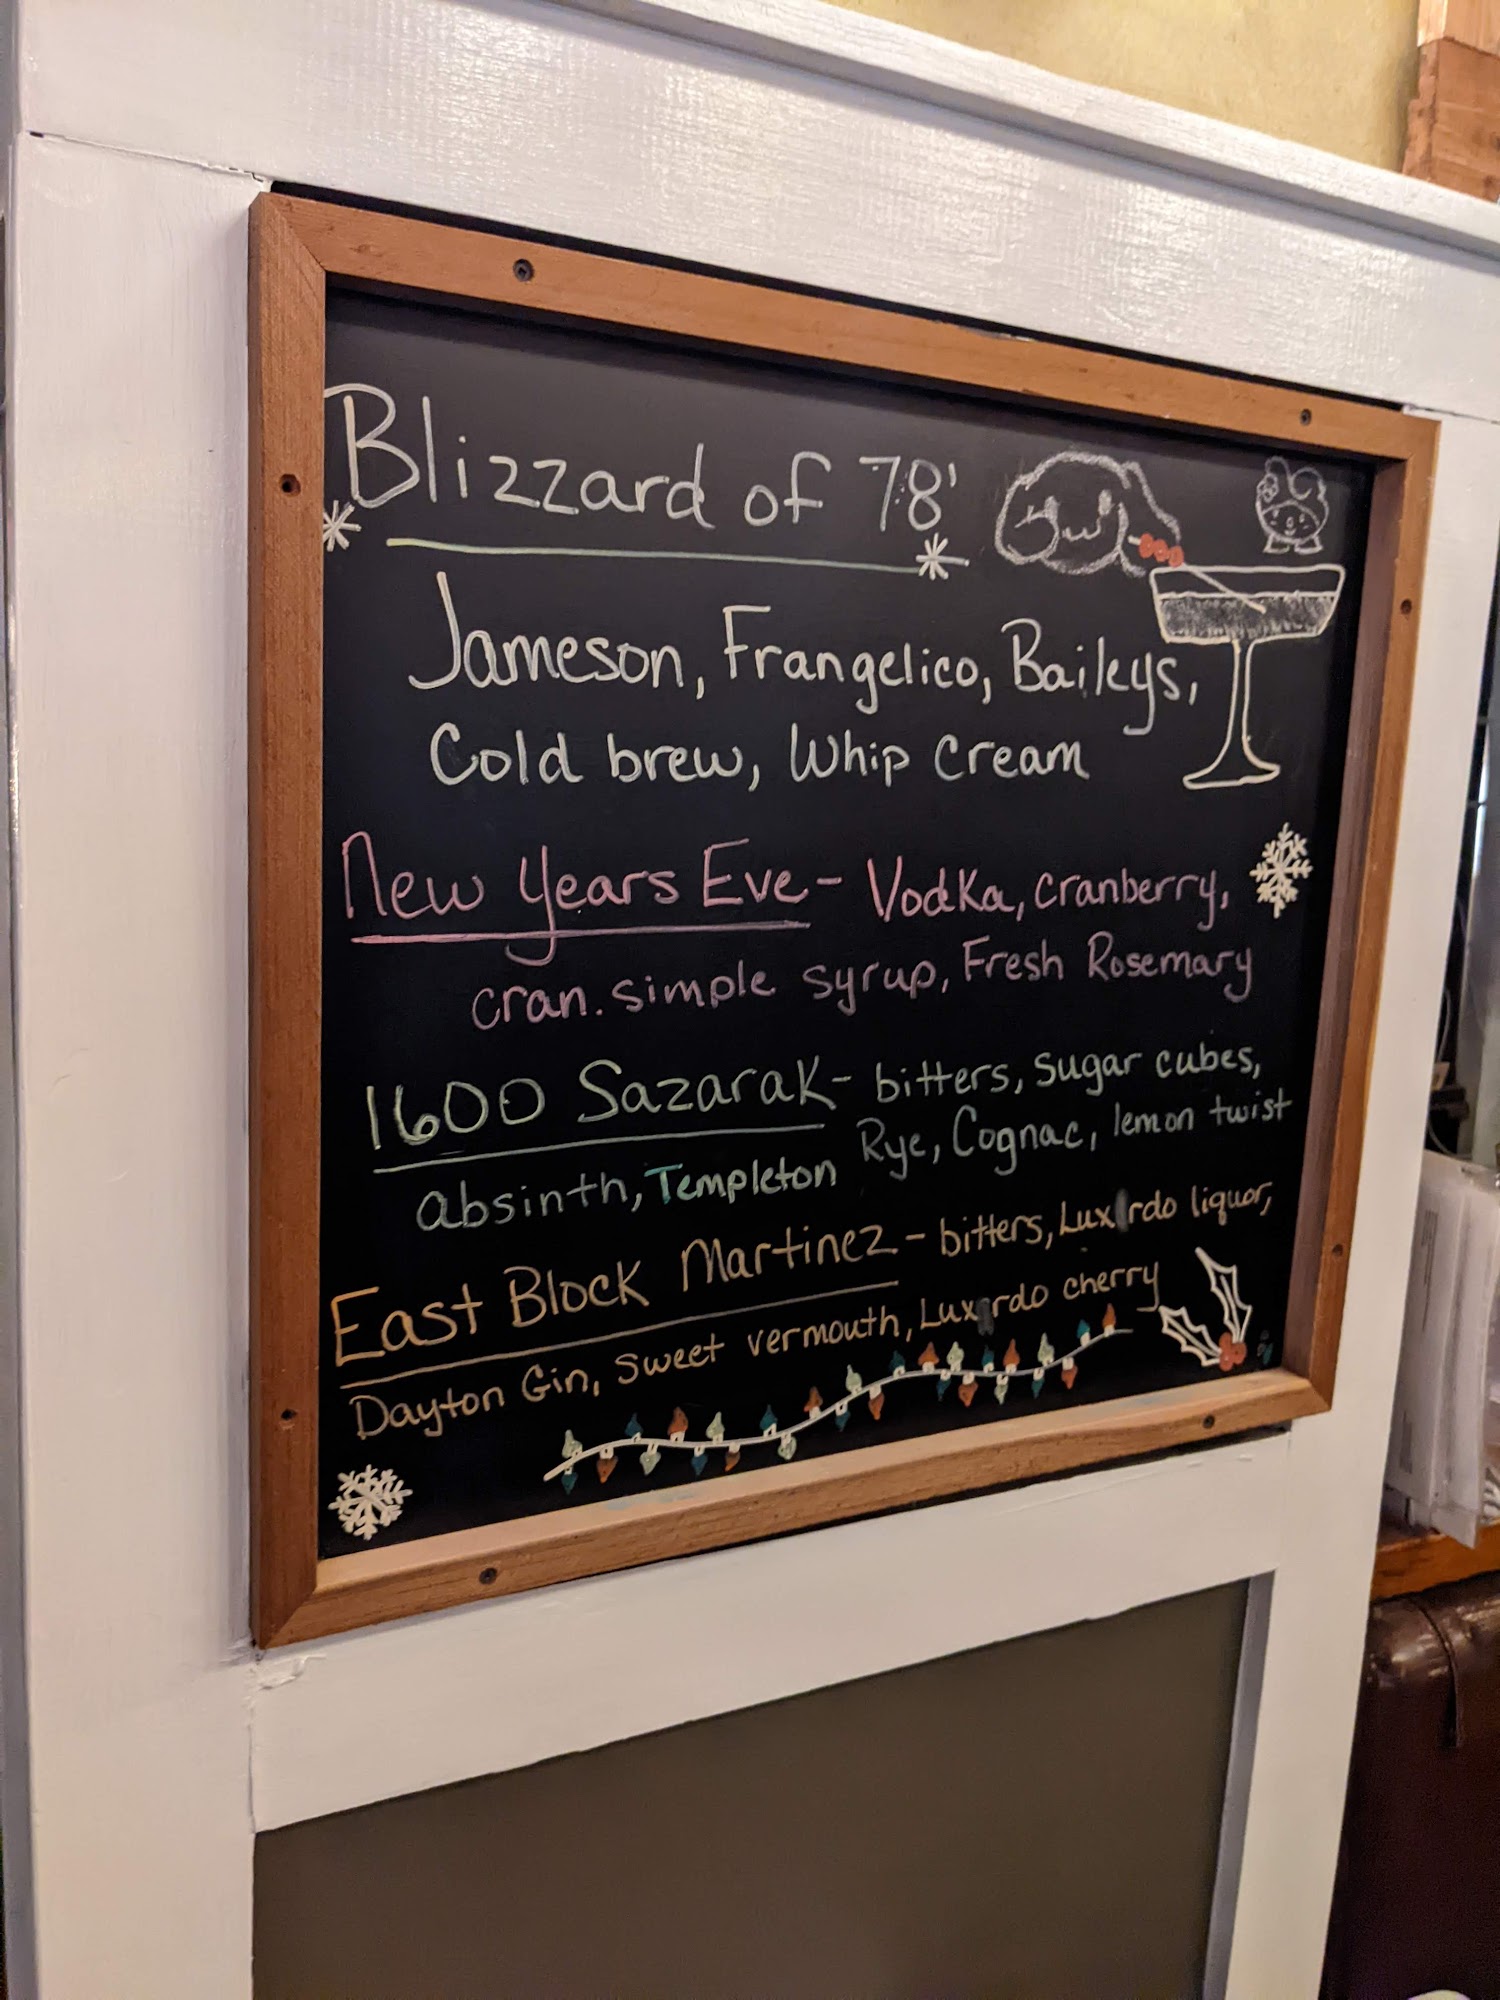 Blizzard of 78'
Jameson, Frangelico, Baileys,
Cold brew, Whip cream
New Years Eve - Vodka, cranberry,
cran. simple syrup, Fresh Rosemary
1600 Sazarak - bitters, sugar cubes,
absinth, Templeton Rye, Cognac, lemon twist
East Block Martinez - bitters, Lux rdo liquor,
Dayton Gin, Sweet vermouth, Lux rdo cherry